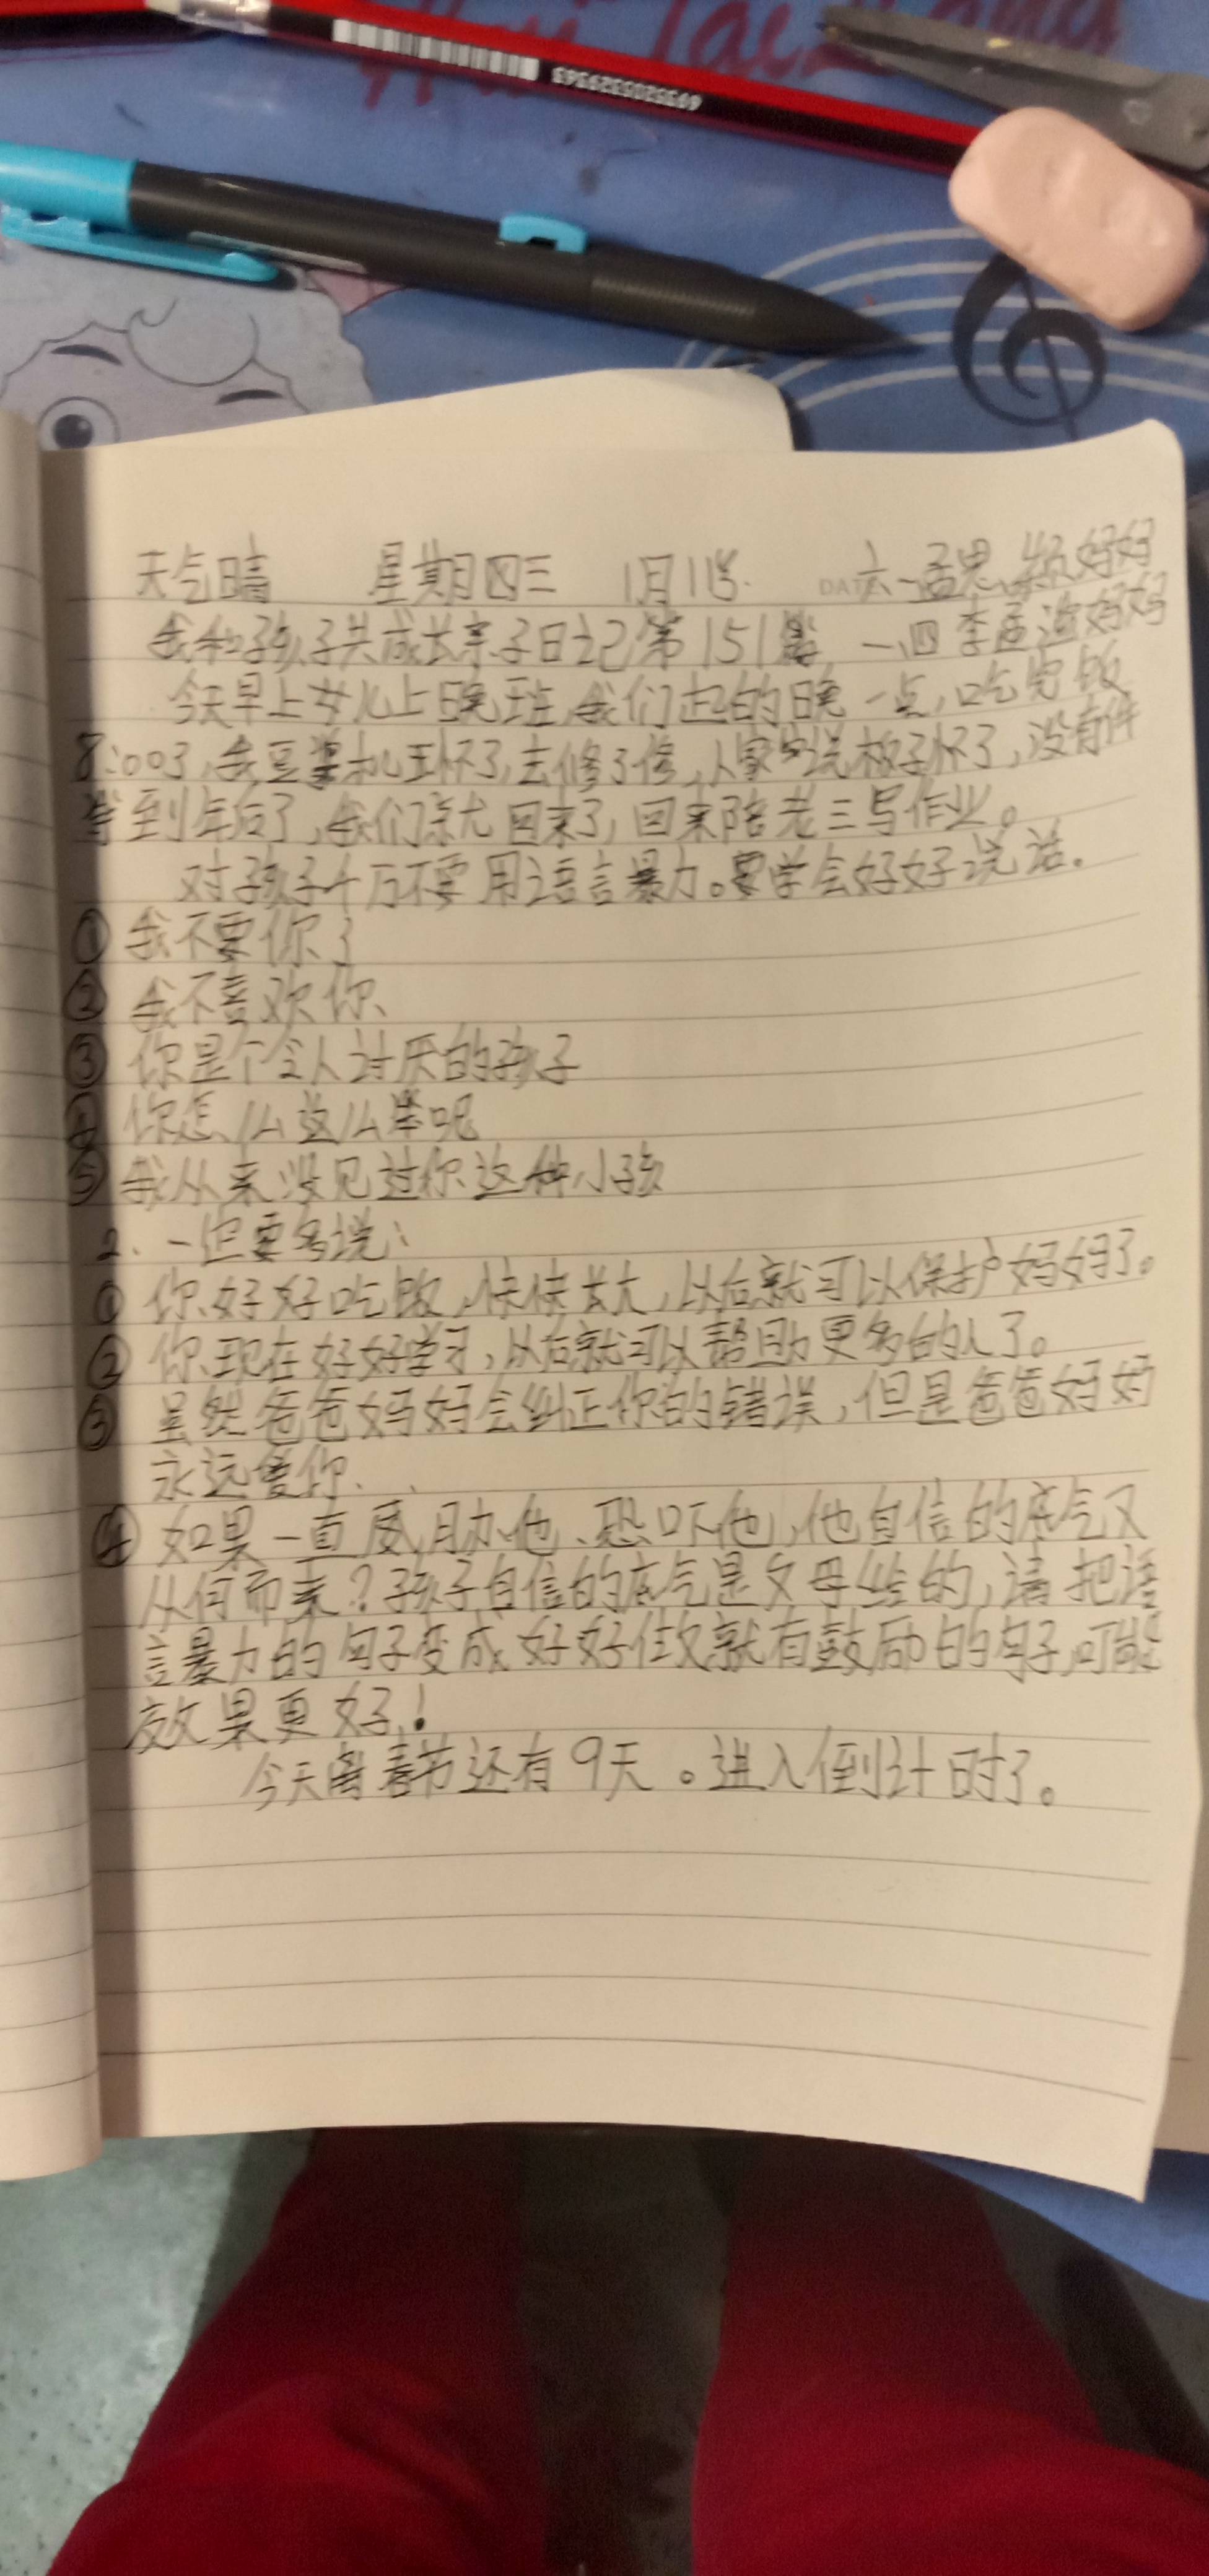 6935205329563
Hui Tai Lang
天气晴 星期四三 1月11号. DATE 六一孟思颖妈妈
我和孩子共成长亲子日记第151篇, 一四李孟 妈妈
今天早上女儿上晚班,我们起的晚一点,吃完饭
8:00了,我豆浆机坏了,去修了修,人家说板子怀了,没有件
等到年后了,我们就回来了,回来陪老三写作业。
对孩子千万不要用语言暴力。要学会好好说话.
① 我不要你了
② 我不喜欢你
③ 你是个令人讨厌的孩子
④ 你怎么这么笨呢
⑤ 我从来没见过你这种小孩
2. 一但要多说:
① 你好好吃饭,快快长大,以后就可以保护妈妈了。
② 你现在好好学习,以后就可以帮助更多的人了。
③ 虽然爸爸妈妈会纠正你的错误,但是爸爸妈妈
永远爱你.
④ 如果一直威胁他、恐吓他,他自信的底气又
从何而来?孩子自信的底气是父母给的,请把语
言暴力的句子变成好好做就有鼓励的句子,可能
效果更好!
今天离春节还有9天。进入倒计时了。